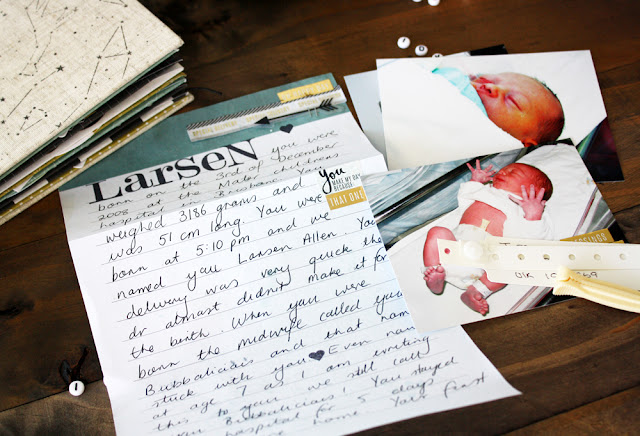 LARSEN
You were
born on the 3rd of December
2008 at the Mater childrens
hospital in Brisbane. You
weighed 3186 grams and
was 51 cm long. You were
born at 5:10 pm and we
named you Larsen Allen. Your
delivery was very quick the
dr almost didn't make it for
the birth. When you were
born the midwife called you
Bubbalicious and that name
stuck with you Even now
at age 7 as I am writing
this to your we still call
your Bubbalicious! You stayed
hospital for 5 days
home. Your first
You
MAKE MY DAY
BECAUSE
THAT ONE